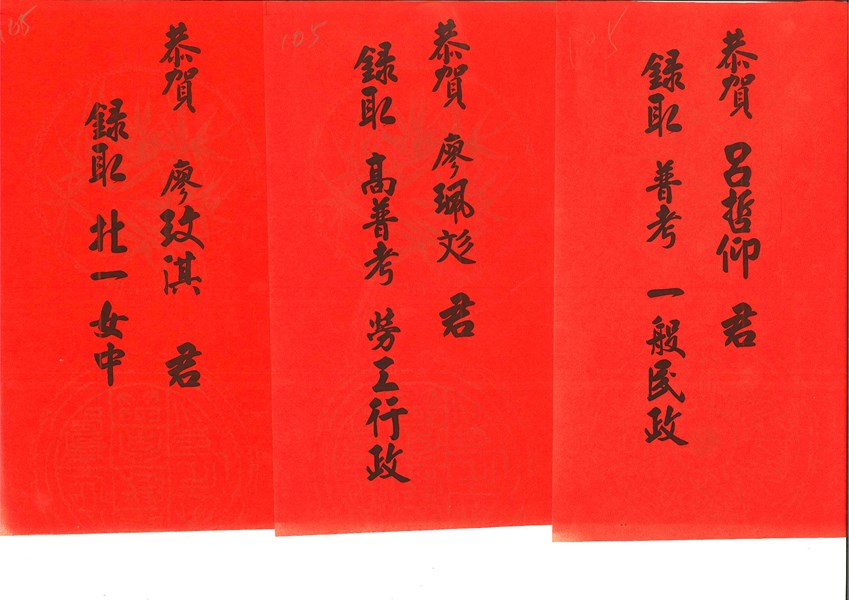 恭賀 呂哲仰 君
録取 普考 一般民政
105
恭賀 廖珮彣 君
録取 高普考 勞工行政
105
恭賀 廖玟淇 君
録取 北一女中
105